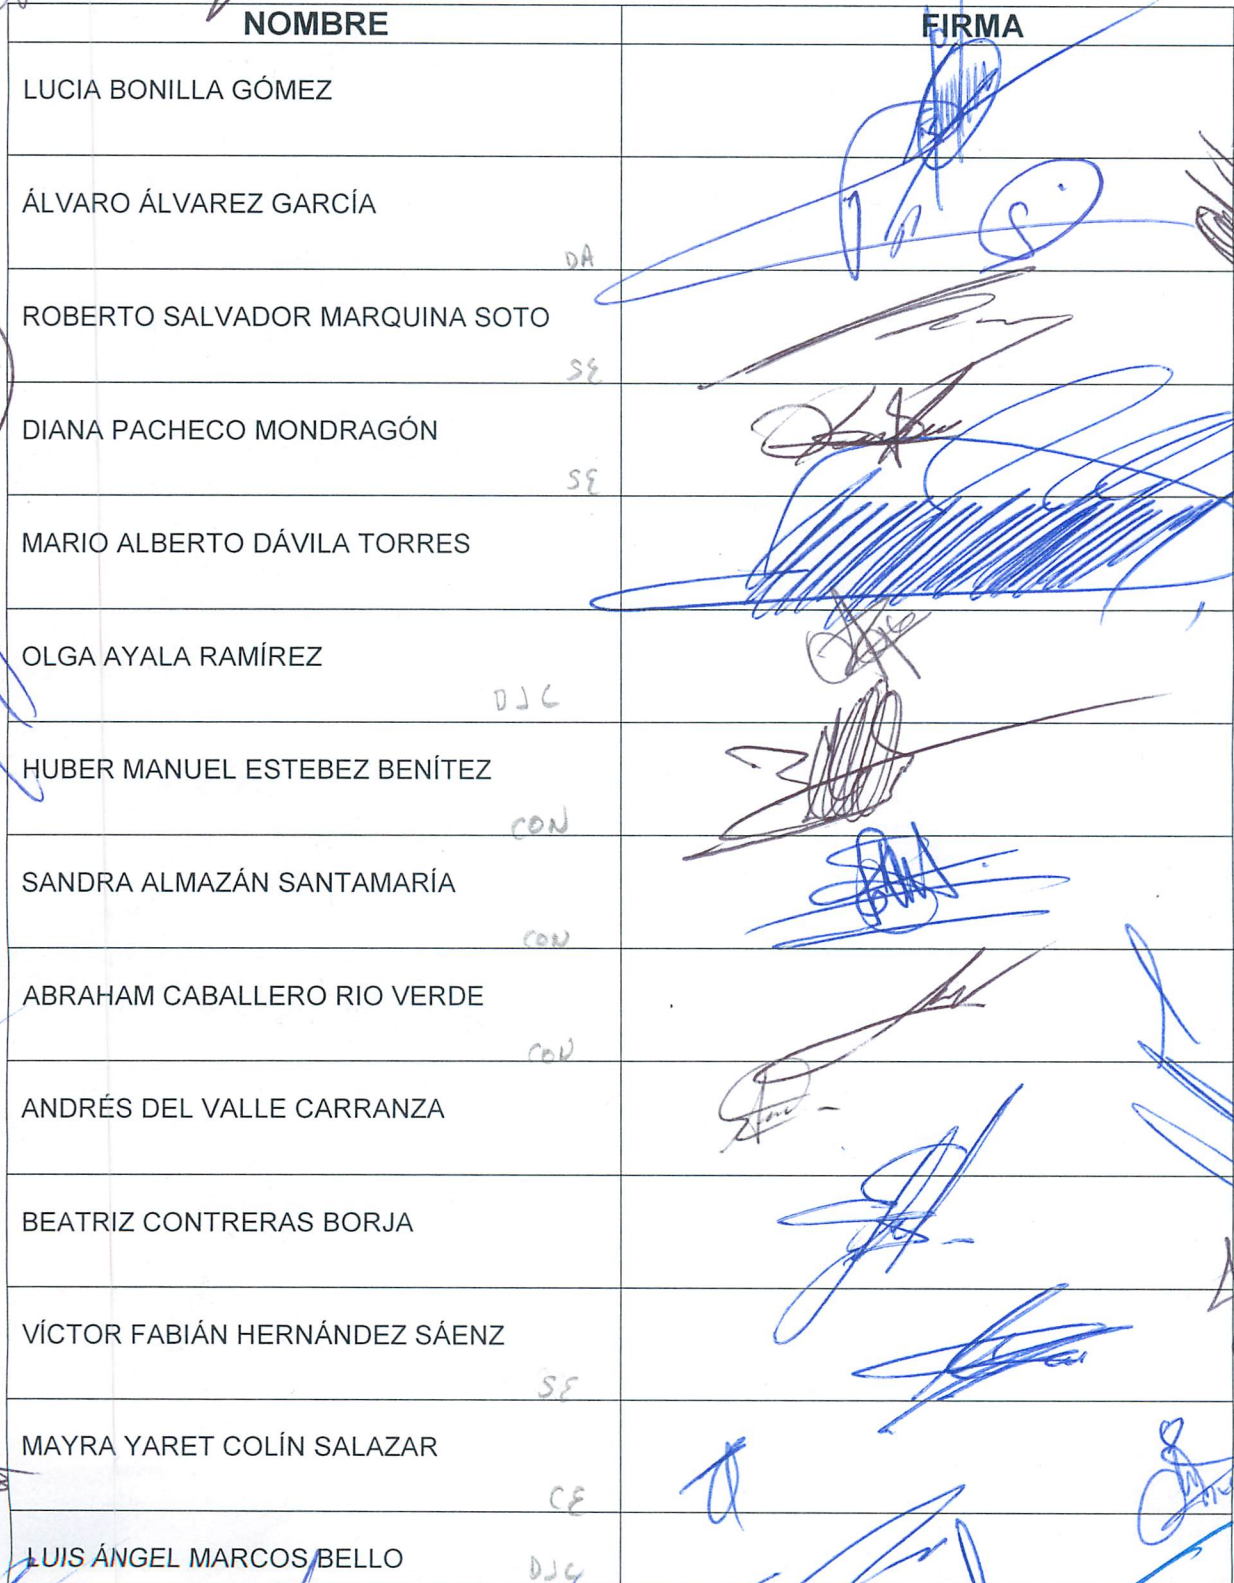 NOMBRE FIRMA
LUCIA BONILLA GÓMEZ
ÁLVARO ÁLVAREZ GARCÍA
DA
ROBERTO SALVADOR MARQUINA SOTO
SE
DIANA PACHECO MONDRAGÓN
SE
MARIO ALBERTO DÁVILA TORRES
OLGA AYALA RAMÍREZ
DJC
HUBER MANUEL ESTEBEZ BENÍTEZ
CON
SANDRA ALMAZÁN SANTAMARÍA
CON
ABRAHAM CABALLERO RIO VERDE
CON
ANDRÉS DEL VALLE CARRANZA
BEATRIZ CONTRERAS BORJA
VÍCTOR FABIÁN HERNÁNDEZ SÁENZ
SE
MAYRA YARET COLÍN SALAZAR
CE
LUIS ÁNGEL MARCOS BELLO
DJC